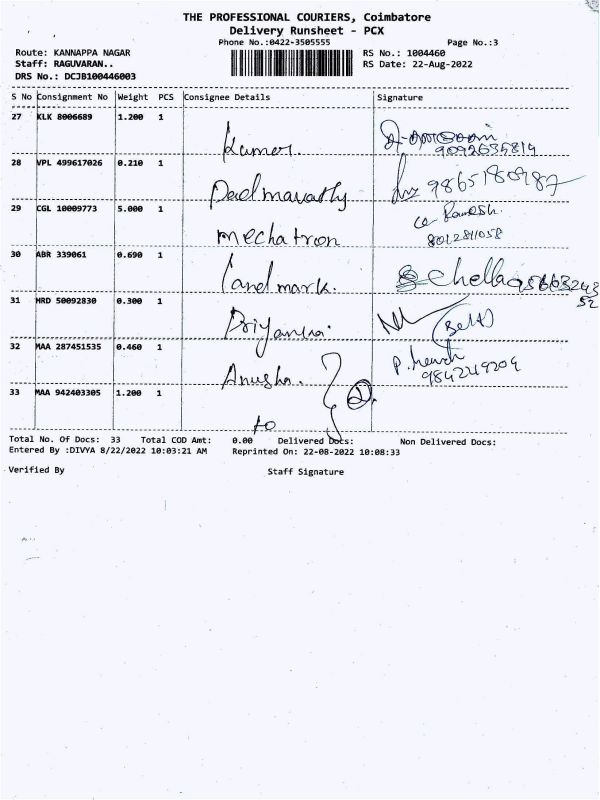 THE PROFESSIONAL COURIERS, Coimbatore
Delivery Runsheet - PCX
Phone No.:0422-3505555 Page No.:3
Route: KANNAPPA NAGAR RS No.: 1004460
Staff: RAGUVARAN.. RS Date: 22-Aug-2022
DRS No.: DCJB100446003
S No Consignment No Weight PCS Consignee Details Signature
27 KLK 8006689 1.200 1 Kumer.
9092635819
28 VPL 499617026 0.210 1 Padmavathy 9865180987
29 CGL 10009773 5.000 1 mechatron Ramesh.
8012811058
30 ABR 339061 0.690 1 Landmark. Chella 9566324352
31 HRD 50092830 0.300 1 Priyanka. (Self)
32 MAA 287451535 0.460 1 Anusha. P.
9842419204
33 MAA 942403305 1.200 1 to 2.
Total No. Of Docs: 33 Total COD Amt: 0.00 Delivered Docs: Non Delivered Docs:
Entered By :DIVYA 8/22/2022 10:03:21 AM Reprinted On: 22-08-2022 10:08:33
Verified By Staff Signature